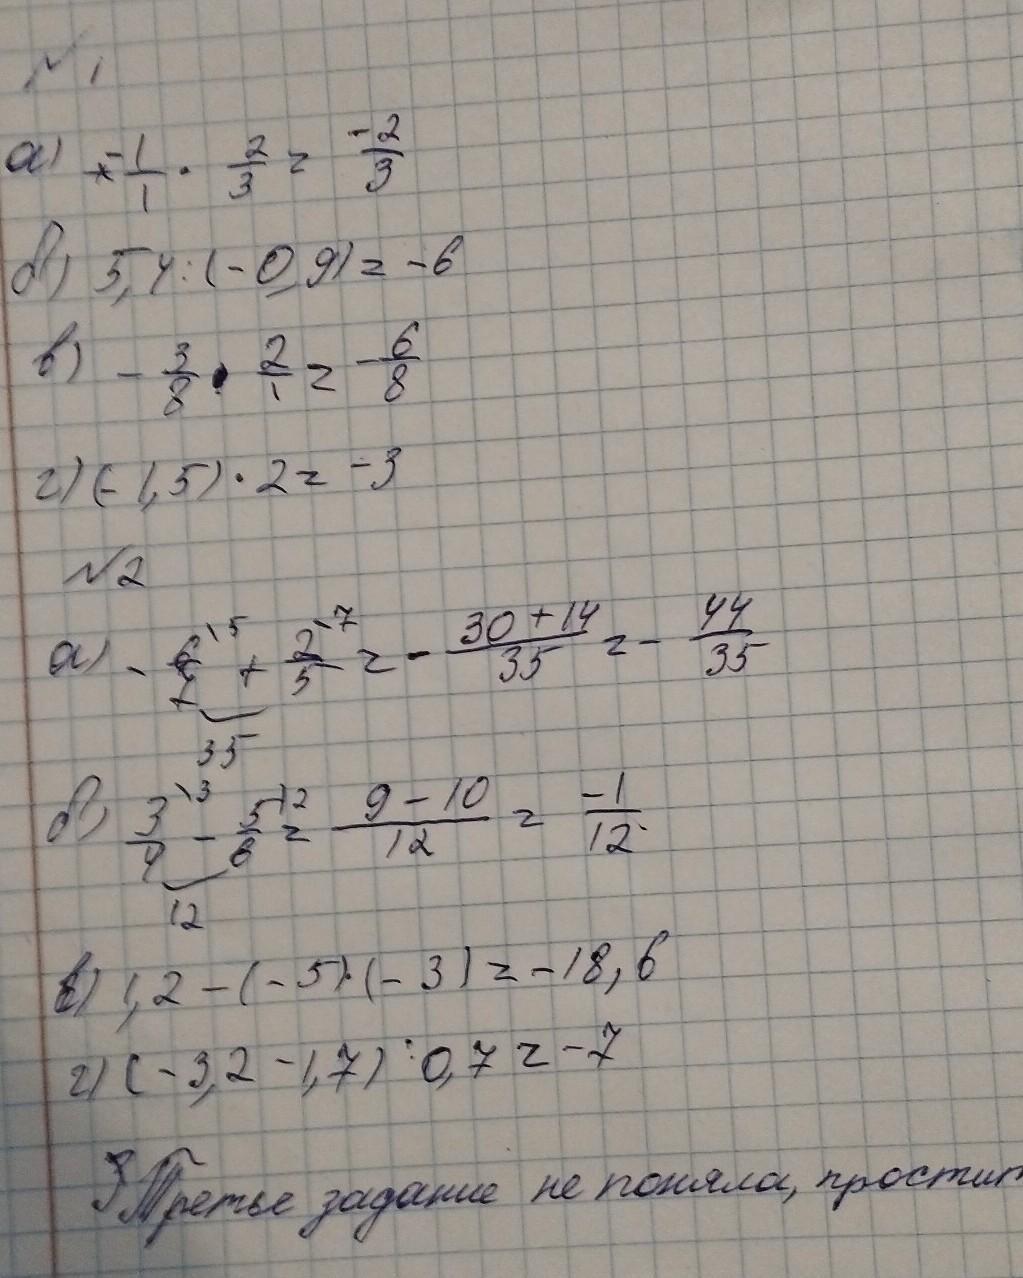 №1
а) -1/1 · 2/3 = -2/3
б) 5,4 : (-0,9) = -6
в) - 3/8 · 2/1 = - 6/8
г) (-1,5) · 2 = -3
№2
а) - 6/7 \5 + 2/5 \7 = - 30+14/35 = - 44/35
35
б) 3/4 \3 - 5/6 \2 = 9-10/12 = -1/12
12
в) 1,2 - (-5) · (-3) = -18,6
г) (-3,2 - 1,7) : 0,7 = -7
3 Третье задание не поняла, простит